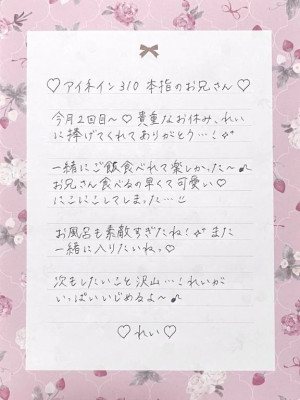 ♡アイネイン310 本指のお兄さん♡
今月2回目〜♡貴重なお休み、れい
に捧げてくれてありがとう…!
一緒にご飯食べれて楽しかった〜♪
お兄さん食べるの早くて可愛い♡
にこにこしてしまった…
お風呂も素敵すぎたね! また
一緒に入りたいねっ♡
次もしたいこと沢山…!れいが
いっぱいいじめるよ〜♪
♡れい♡